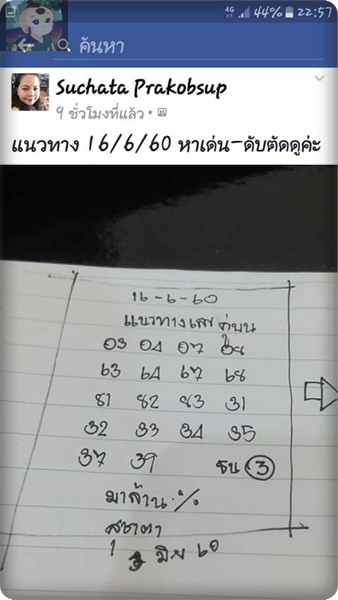 4G 44% 22:57
ค้นหา
Suchata Prakobsup
9 ชั่วโมงที่แล้ว
แนวทาง 16/6/60 หาเด่น-ดับตัดดูค่ะ
16-6-60
แนวทางเลขคู่บน
03 04 07 08
63 64 67 68
81 82 83 31
32 33 34 35
37 39 3
มาล้าน %
สุชาตา
มิย 60